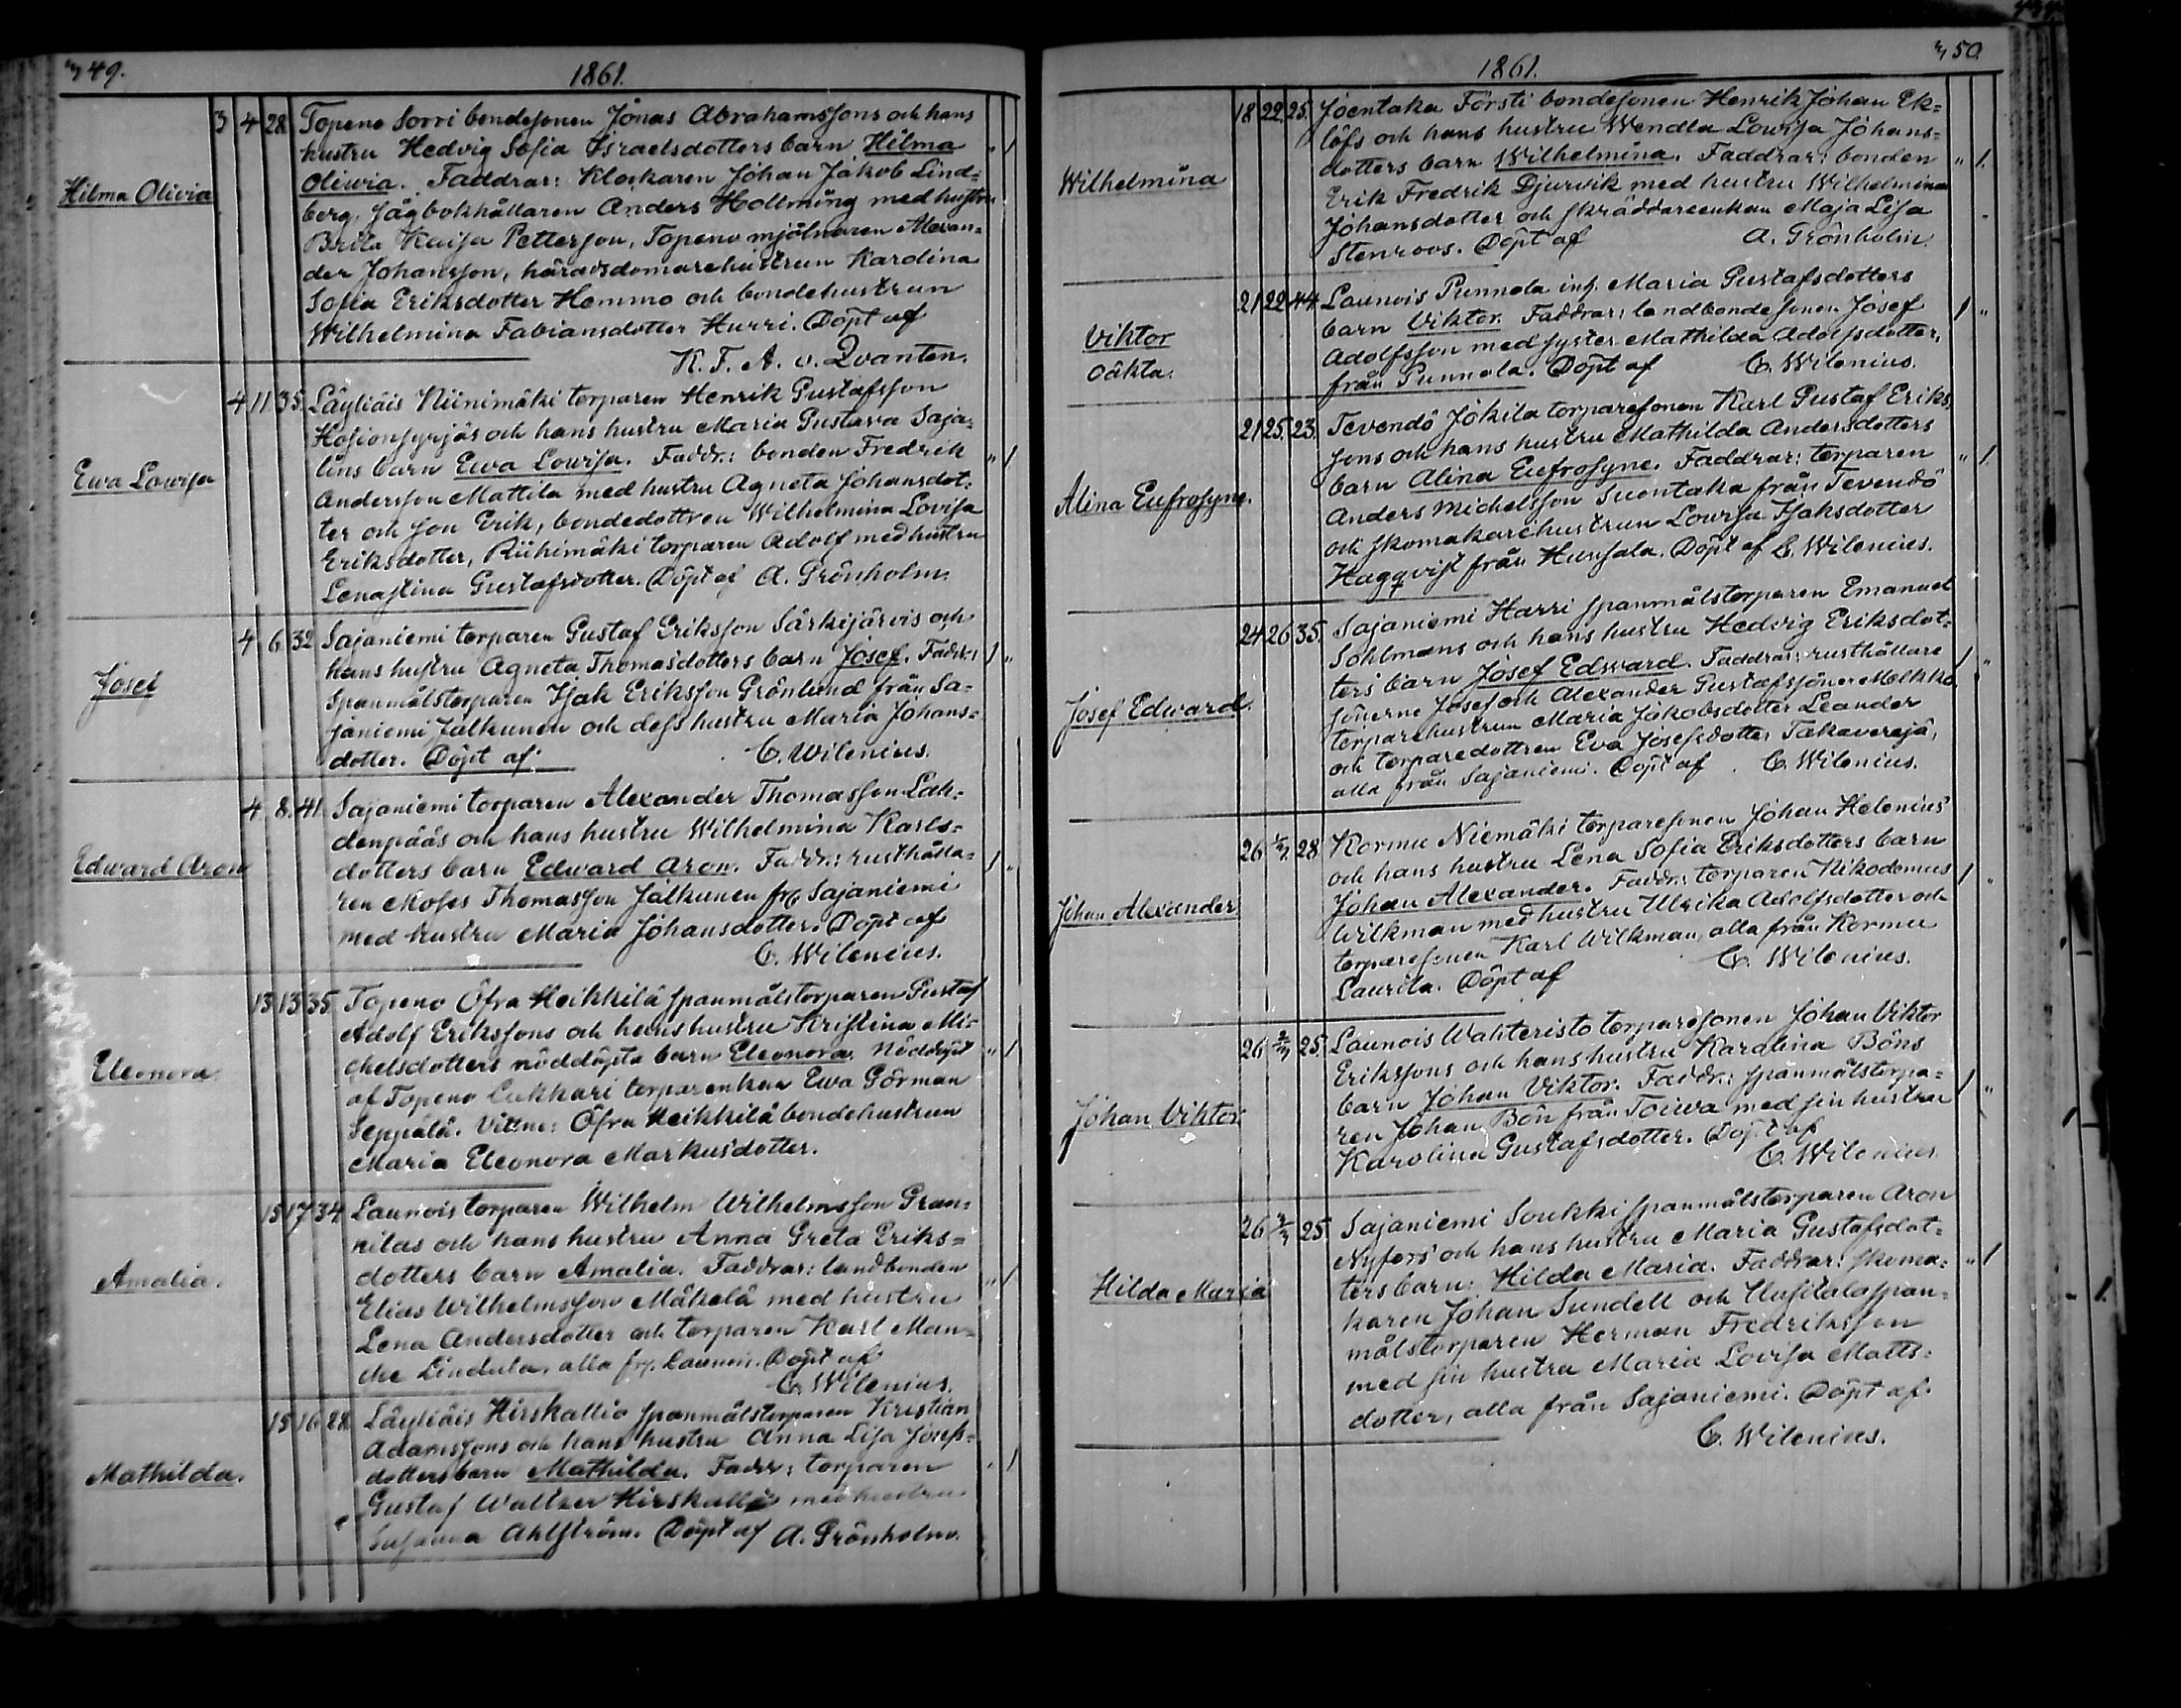 49.
1861.
Hilma Olivia
3 4 28 Topeno Sorri bondesonen Jonas Abrahamssons och hans
hustru Hedvig Sofia Israelsdotters barn Hilma
Oliwia. Faddrar: Klockaren Johan Jakob Lind=
berg, Jågbokhållaren Anders Hollming med hustru
Brita Kaisa Pettersson, Topeno mjölnaren Alexan=
der Johansson, häradsdomarehustrun Karolina
Sofia Eriksdotter Hommo och bondehustrun
Wilhelmina Fabiansdotter Hurri. Döpt af
K. F. A. v. Qvanten.
Ewa Lowisa
4 11 35. Läyliäis Niinimäki torparen Henrik Gustafsson
Hosionsyrjäs och hans hustru Maria Gustava Saja=
lins barn Ewa Lowisa. Faddr.: bonden Fredrik
Andersson Mattila med hustru Agneta Johansdot=
ter och son Erik, bondedottren Wilhelmina Lovisa
Eriksdotter, Riihimäki torparen Adolf med hustru
Lenastina Gustafsdotter. Döpt af A. Grönholm.
Josef
4 6 32 Sajaniemi torparen Gustaf Eriksson Särkijärvis och
hans hustru Agneta Thomasdotters barn Josef. Faddr.:
Spanmålstorparen Isak Eriksson Grönlund från Sa=
janiemi Jalkunen och dess hustru Maria Johans=
dotter. Döpt af C. Wilenius.
Edward Aron
4 8. 41. Sajaniemi torparen Alexander Thomasson Lah=
denpääs och hans hustru Wilhelmina Karls=
dotters barn Edward Aron. Faddr.: rusthålla=
ren Moses Thomasson Jalkunen frå Sajaniemi
med hustru Maria Johansdotter. Döpt af
C. Wilenius.
Eleonora
13 13 35. Topeno Öfra Heikkilä spanmålstorparen Gustaf
Adolf Erikssons och hans hustru Kristina Mi=
chelsdotters nöddöpta barn Eleonora. Nöddöpt
af Topeno Lukkari torparenkan Ewa Görman
Seppälä. Vittne: Öfra Heikkilä bondehustrun
Maria Eleonora Markusdotter.
Amalia.
15 17 34 Launois torparen Wilhelm Wilhelmsson Gran=
nilas och hans hustru Anna Greta Eriks=
dotters barn Amalia. Faddrar: landbonden
Elias Wilhelmsson Mäkelä med hustru
Lena Andersdotter och torparen Karl Man=
che Lindula, alla frn. Launois. Döpt af
C. Wilenius.
Mathilda.
15 16 28 Läyliäis Hirskallio spanmålstorparen Kristian
Adamssons och hans hustru Anna Lisa Josefs=
dotters barn Mathilda. Faddr: torparen
Gustaf Waltter Hirskallio med hustru
Susanna Ahlström. Döpt af A. Grönholm.
50
1861.
Wilhelmina
18 22. 25. Joentaka Försti bondesonen Henrik Johan Ek=
löfs och hans hustru Wendla Lowisa Johans=
dotters barn Wilhelmina. Faddrar: bonden
Erik Fredrik Djurvik med hustru Wilhelmina
Johansdotter och skräddareenkan Maja Lisa
Stenroos. Döpt af A. Grönholm.
Viktor
oäkta.
21 22 44 Launois Punnola inh. Maria Gustafsdotters
barn Viktor. Faddrar: landbondesonen Josef
Adolfsson med syster Mathilda Adolfsdotter,
från Punnola. Döpt af C. Wilenius.
Alina Eufrosyne.
21 25. 23. Tevendö Jokila torparesonen Karl Gustaf Eriks
sons och hans hustru Mathilda Andersdotters
barn Alina Eufrosyne. Faddrar: torparen
Anders Michelsson Suontaka från Tevendö
och skomakarehustrun Lowisa Isaksdotter
Haggqvist från Hunsala. Döpt af C. Wilenius.
Josef Edward.
24 26 35. Sajaniemi Harri spanmålstorparen Emanuel
Sohlmans och hans hustru Hedvig Eriksdot=
ters barn Josef Edward. Faddrar: rusthållare
sönerne Josef och Alexander Gustafssöner Molkko
torparehustrun Maria Jakobsdotter Leander
och torparedottren Eva Josefsdotter Takaverejä,
alla från Sajaniemi. Döpt af C. Wilenius.
Johan Alexander
26 1/7. 28 Kormu Niemäki torparesonen Johan Helenius'
och hans hustru Lena Sofia Eriksdotters barn
Johan Alexander. Faddr.: torparen Nikodemus
Wilkman med hustru Ulrika Adolfsdotter och
torparesonen Karl Wilkman, alla från Kormu
Laurila. Döpt af C. Wilenius.
Johan Viktor
26 2/7 25 Launois Wahteristo torparesonen Johan Viktor
Erikssons och hans hustru Karolina Böns
barn Johan Viktor. Faddr.: spanmålstorpa=
ren Johan Bön från Toiwa med sin hustru
Karolina Gustafsdotter. Döpt af
C. Wilenius.
Hilda Maria
26 2/7 25. Sajaniemi Soukki spanmålstorparen Aron
Nyfors' och hans hustru Maria Gustafsdot=
ters barn: Hilda Maria. Faddrar: skoma=
karen Johan Sundell och Uusitalospan=
målstorparen Herman Fredriksson
med sin hustru Maria Lovisa Matts=
dotter, alla från Sajaniemi. Döpt af.
C. Wilenius.